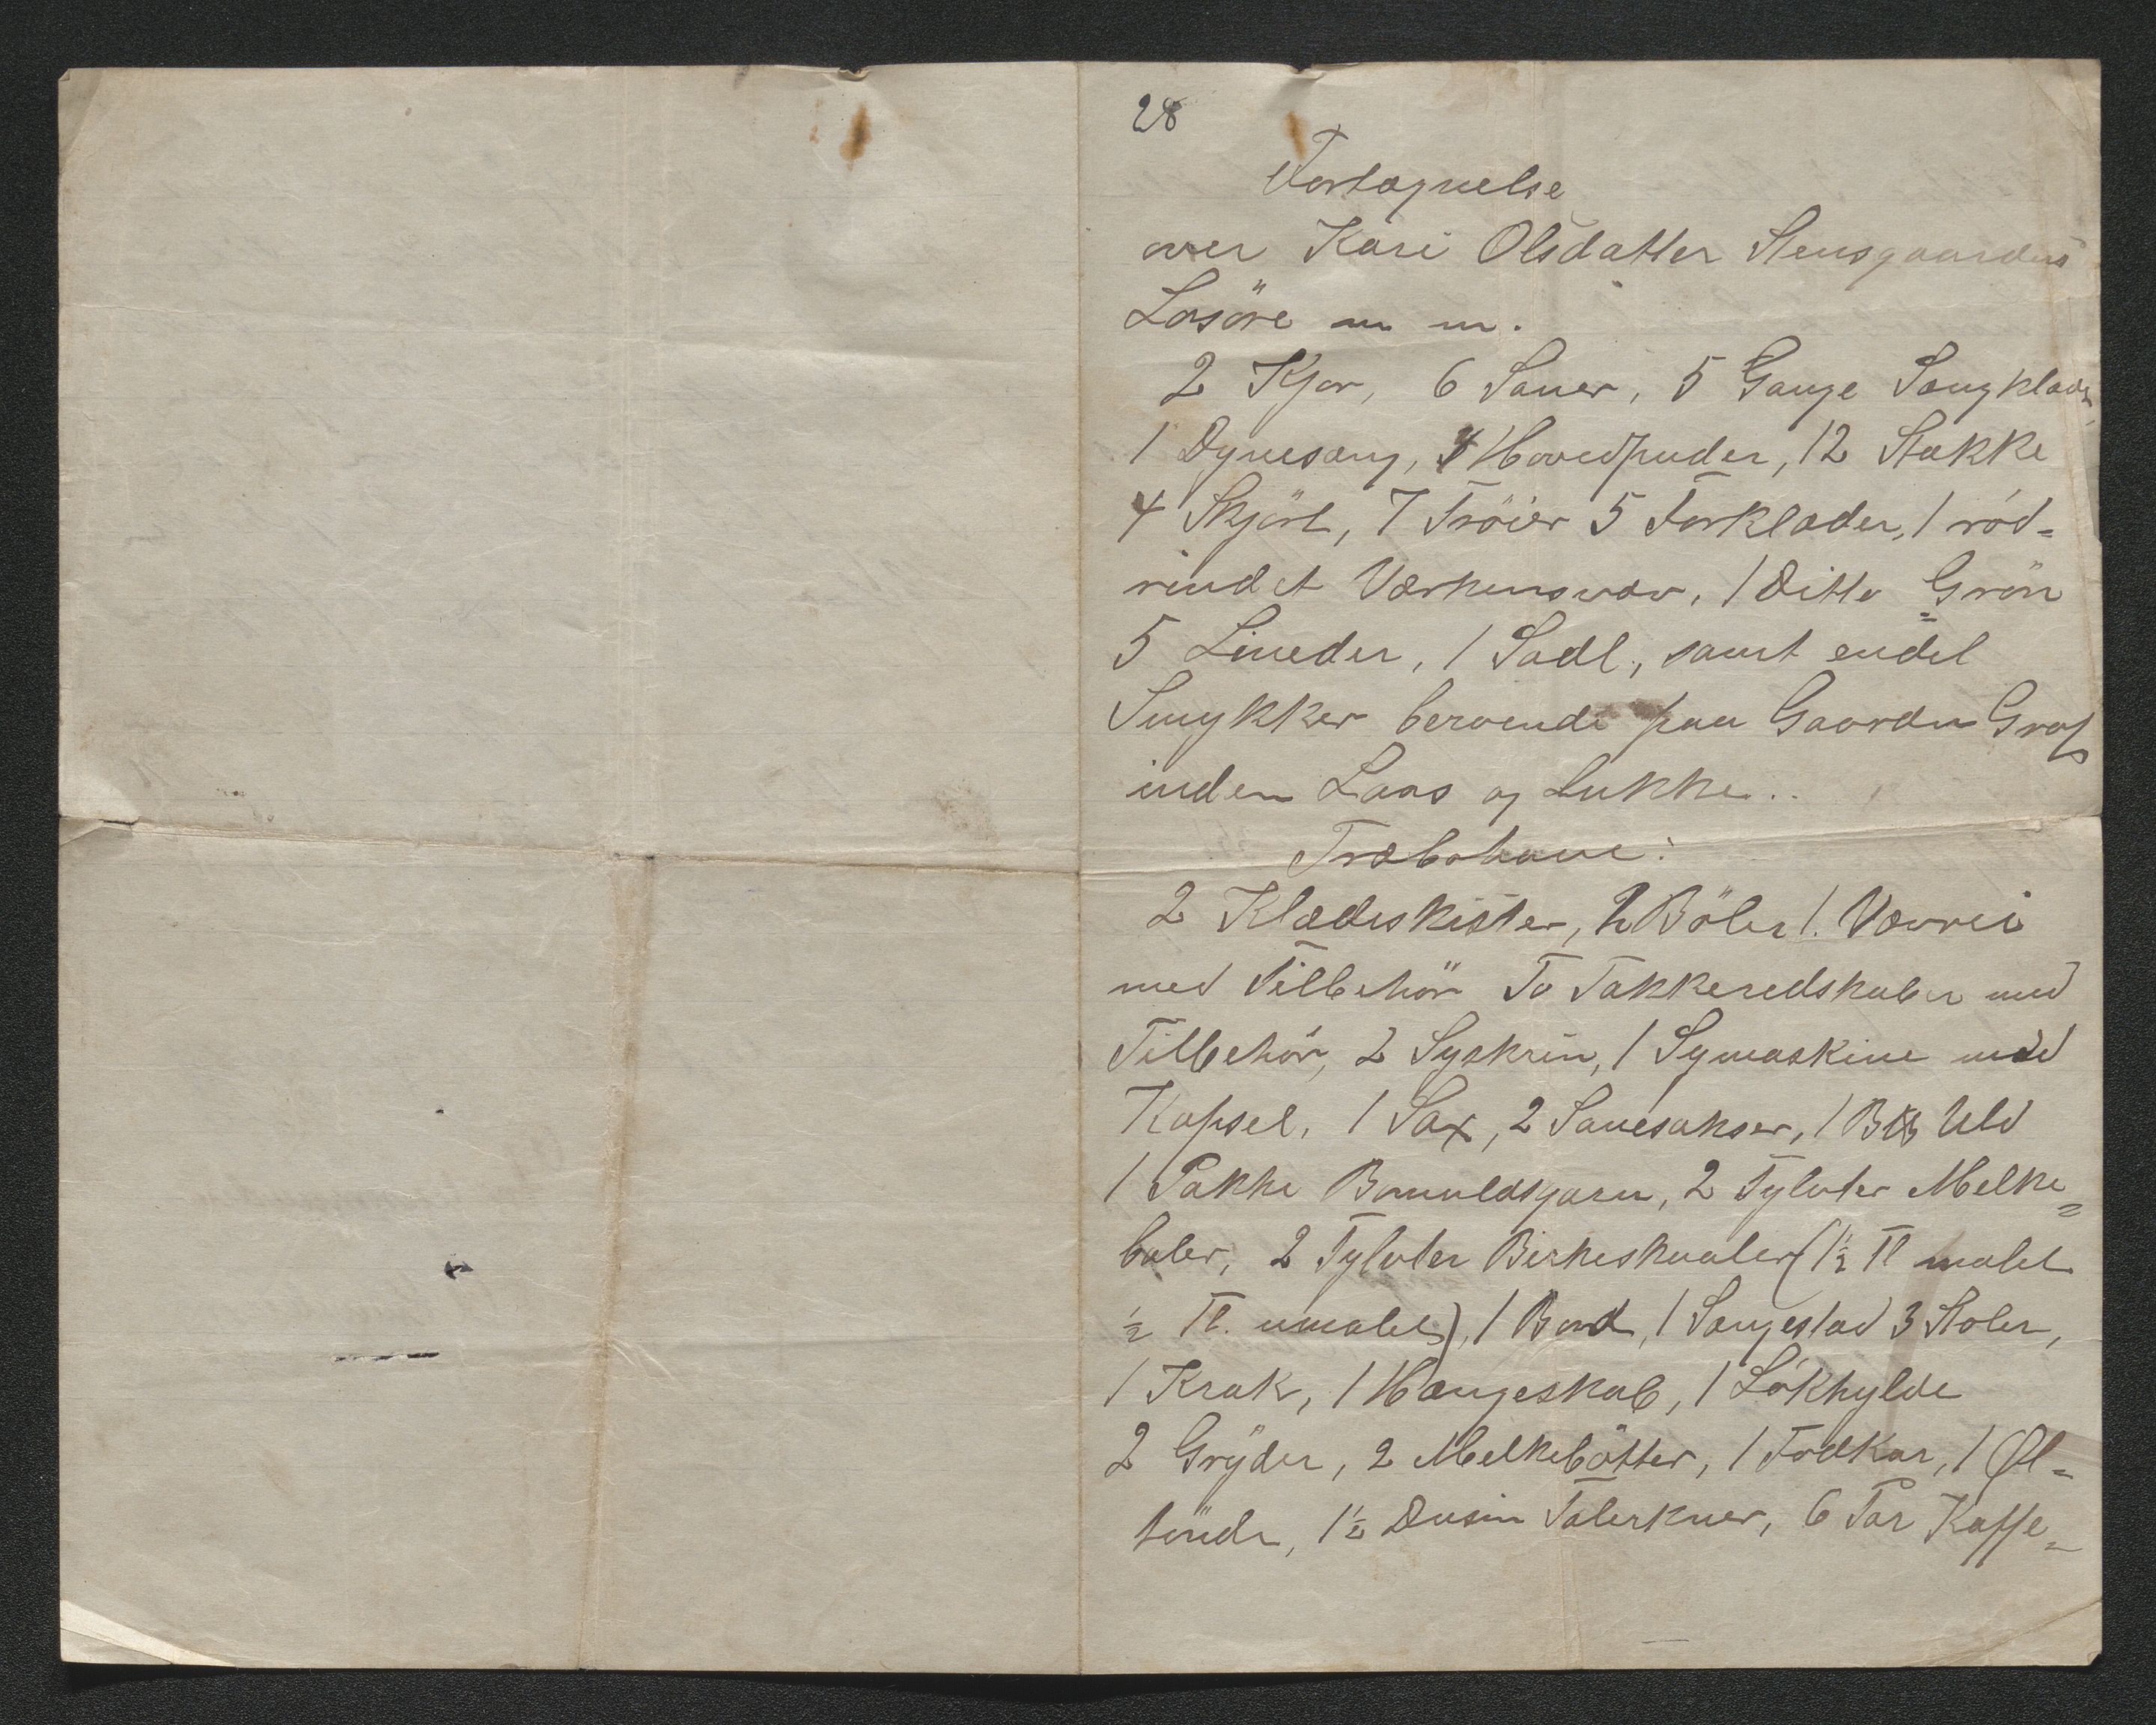 28
Fortegnelse
over Kari Olsdatter Stensgaardens
Lösöre m m.
2 Kjør, 6 Sauer, 5 Gange Sengklæder
1 Dynesæng, 4 Hovedpuder, 12 Stakke
4 Skjört, 7 Tröier 5 Forklæder, 1 röd-
rindet Værkensvæv, 1 Ditto Grön
5 Lineder, 1 Sadl, samt endel
Smykker beroende paa Gaarden Grøt
inden Laas og Lukke..
Træbohave:
2 Klædeskister, 2 Böler 1. Vævrei
med Tilbehör To Takkeredskaber med
Tilbehör, 2 Syskrin, 1 Symaskine med
Kapsel, 1 Sax, 2 Sauesakser, 1 Uld
1 Pakke Bomuldsgarn, 2 Tylvter Melke=
boler, 2 Tylvter Birkeskaaler (1½ Tl malet
½ Tl. umalet), 1 Bord, 1 Sængestad 3 Stoler,
1 Krak, 1 Hængeskab, 1 Lökhylde
2 Gryder, 2 Melkebötter, 1 Fodkar, 1 Øl=
tönde, 1½ Dusin Talerkner, 6 Par Kaffe=